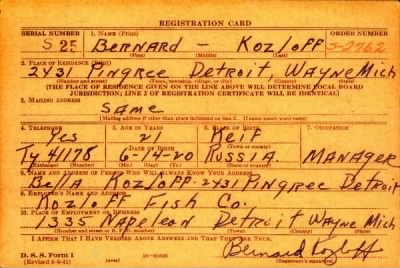 REGISTRATION CARD
SERIAL NUMBER 1. NAME (Print) ORDER NUMBER
S 25 BERNARD - KOZLOFF S-2762
2. PLACE OF RESIDENCE (Print)
2431 Pingree Detroit Wayne Mich
(Number and street) (Town, township, village, or city) (County) (State)
[THE PLACE OF RESIDENCE GIVEN ON THE LINE ABOVE WILL DETERMINE LOCAL BOARD
JURISDICTION; LINE 2 OF REGISTRATION CERTIFICATE WILL BE IDENTICAL]
3. MAILING ADDRESS
SAME
[Mailing address if other than place indicated on line 2. If same insert word same]
4. TELEPHONE 5. AGE IN YEARS 6. PLACE OF BIRTH 7. OCCUPATION
Yes 21 Keif
Ty 41178 DATE OF BIRTH 6-14-20 RUSSIA. MANAGER
8. NAME AND ADDRESS OF PERSON WHO WILL ALWAYS KNOW YOUR ADDRESS
Bella KOZLOFF-2431 PINGREE Detroit
9. EMPLOYER'S NAME AND ADDRESS
KOZLOFF Fish Co.
10. PLACE OF EMPLOYMENT OR BUSINESS
1335 Napoleon Detroit Wayne Mich
(Number and street or R. F. D. number) (Town) (County) (State)
I AFFIRM THAT I HAVE VERIFIED ABOVE ANSWERS AND THAT THEY ARE TRUE.
D. S. S. Form 1 Bernard Kozloff
(Registrant's signature)